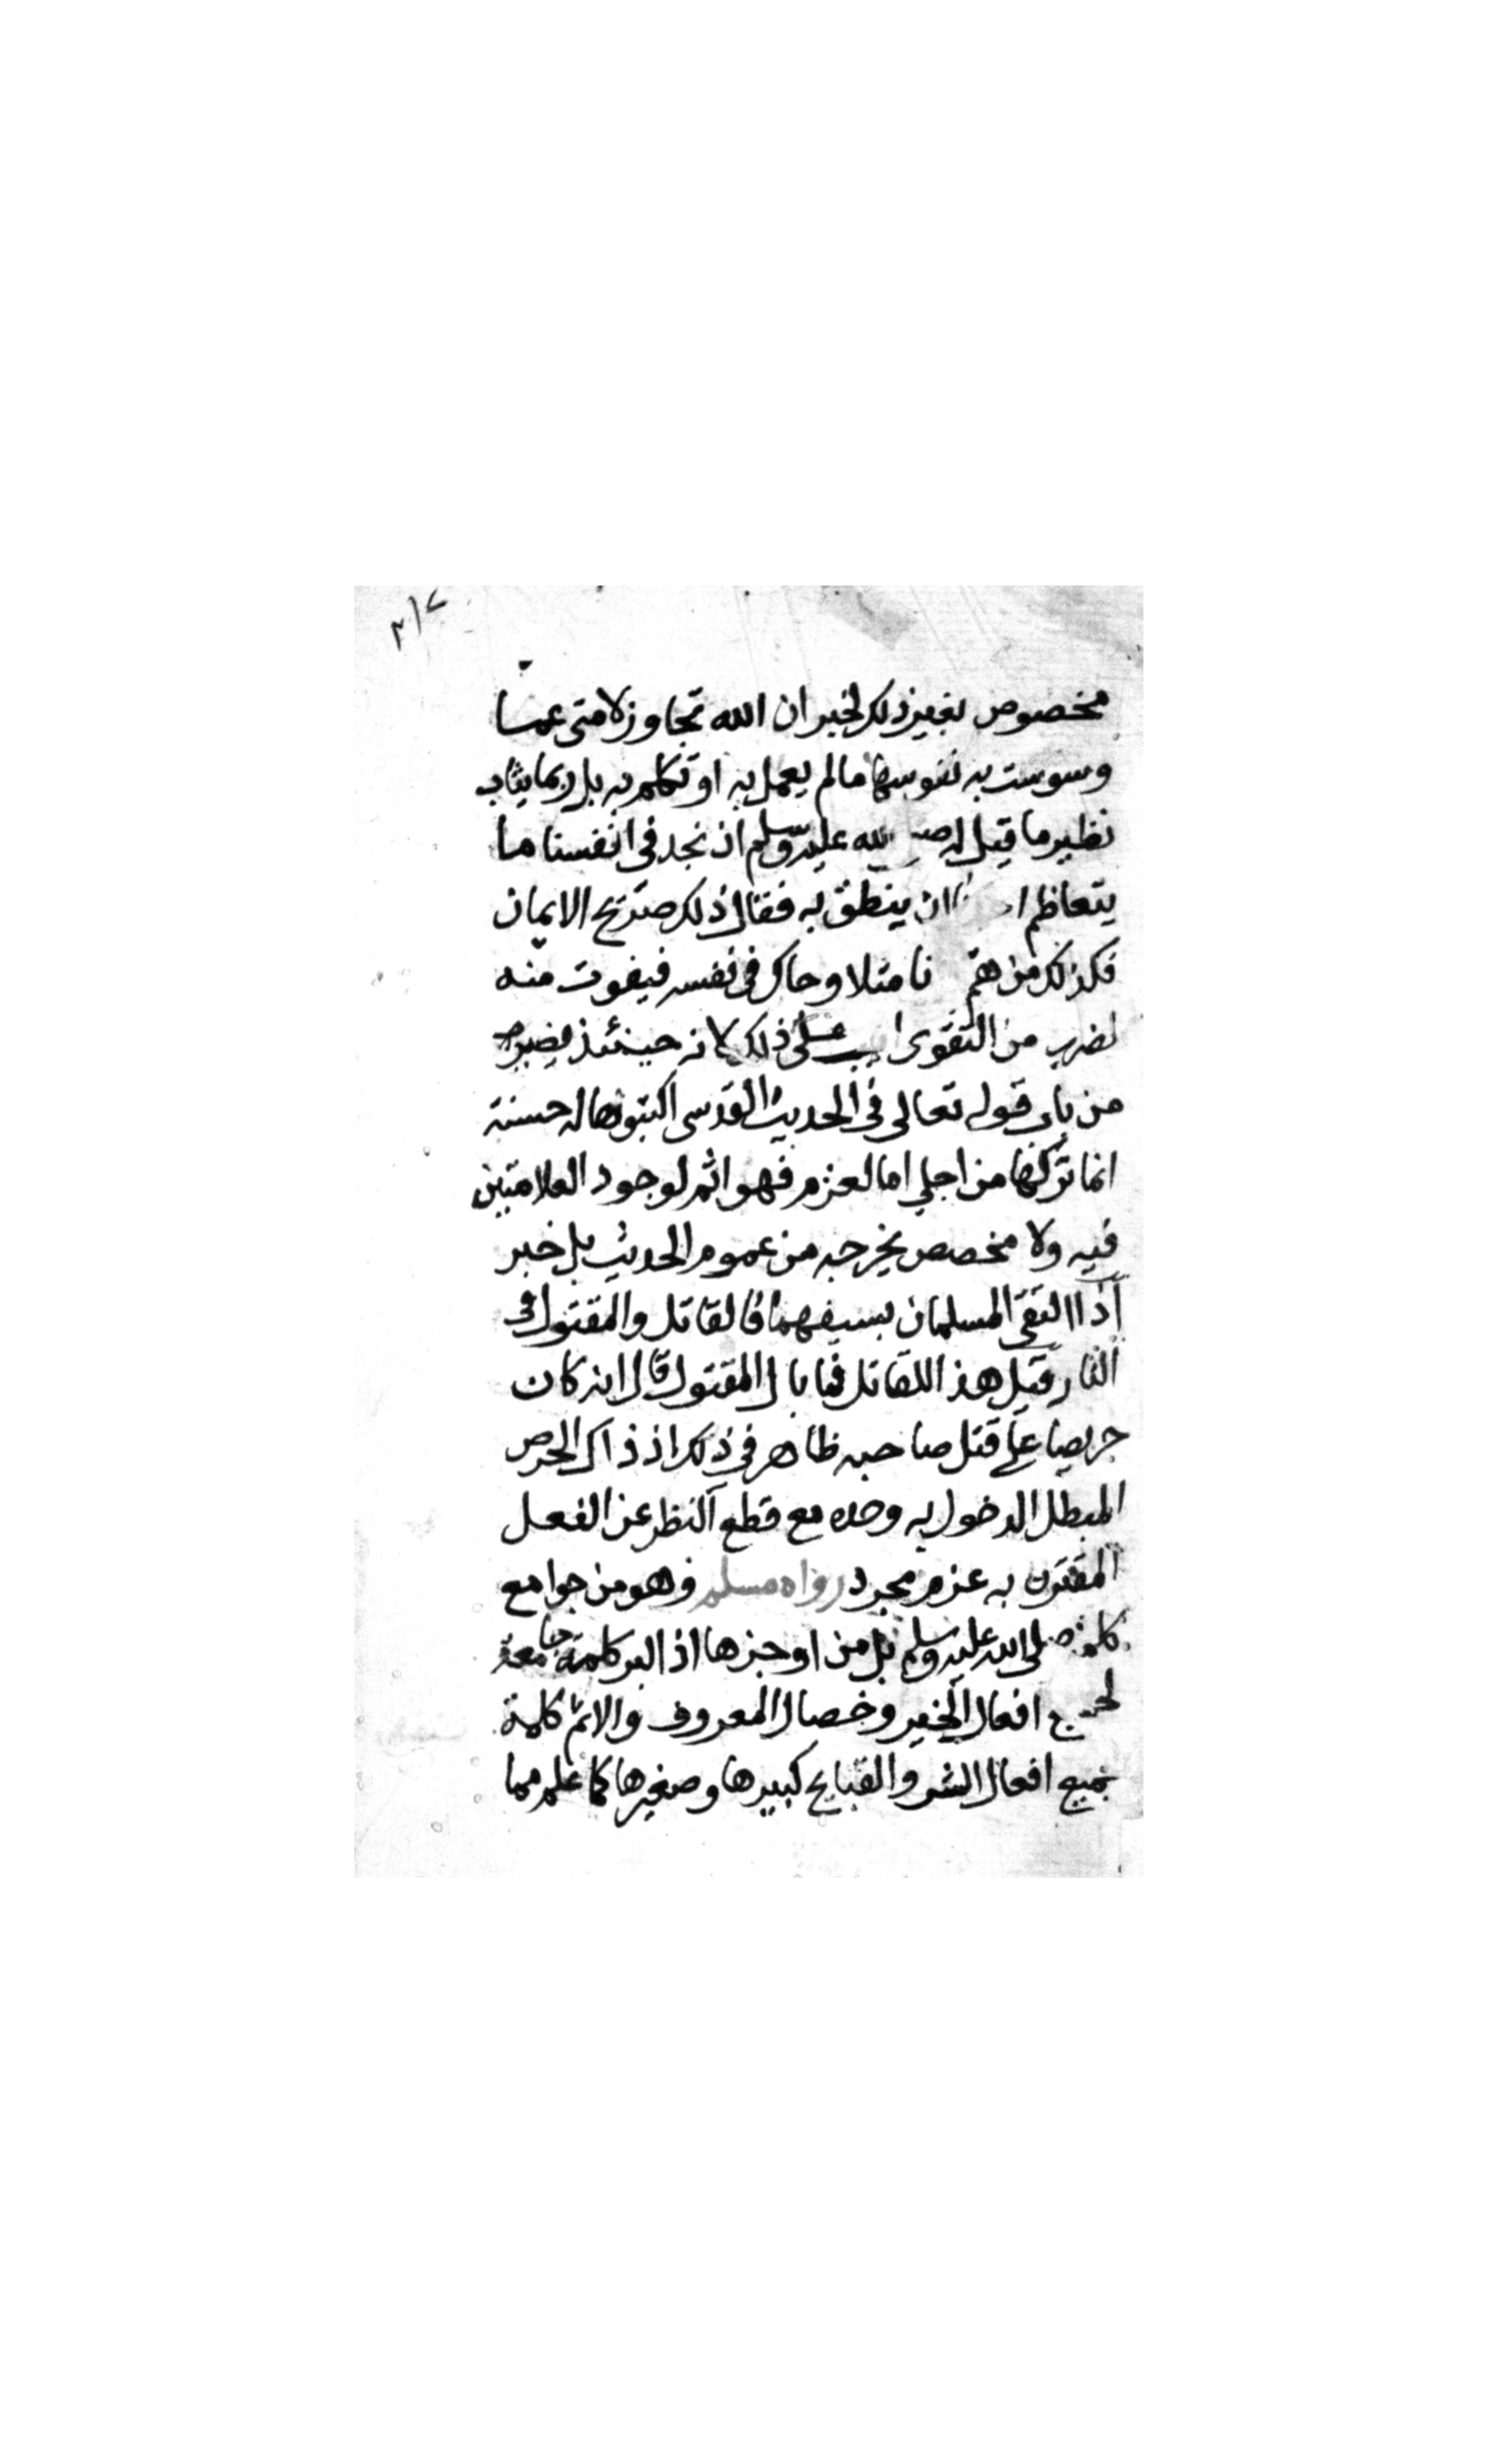 ٢١٧
مخصوص بغير ذلك لخبر ان الله تجاوز لامتى عما
وسوست به نفوسها مالم يعمل به او تكلم به بل ربما يثاب
نظير ما قيل له صلى الله عليه وسلم انا نجد فى انفسنا ما
يتعاظم ان ينطق به فقال ذلك صريح الايمان
فكذلك من هم نا مثلا وحاك فى نفسه فيفوت منه
لضرب من التقوى على ذلك لانه حينئذ يصير
من باب قوله تعالى فى الحديث القدسى اكتبوها له حسنة
انما تركها من اجلي اما لعزم فهو اثم لوجود العلامتين
فيه ولا مخصص يخرجه من عموم الحديث بل خبر
اذا التقى المسلمان بسيفهما فالقاتل والمقتول فى
النار قيل هذا القاتل فما بال المقتول قال انه كان
حريصا على قتل صاحبه ظاهر فى ذلك اذ ذاك الحرص
المبطل الدخول به وحده مع قطع النظر عن الفعل
المقترن به عزم مجرد رواه مسلم وهو من جوامع
كلمه صلى الله عليه وسلم بل من اوجزها اذ البر كلمة جامعة
لجميع افعال الخير وخصال المعروف والاثم كلمة
جميع افعال الشر والقبايح كبيرها وصغيرها كما علم مما